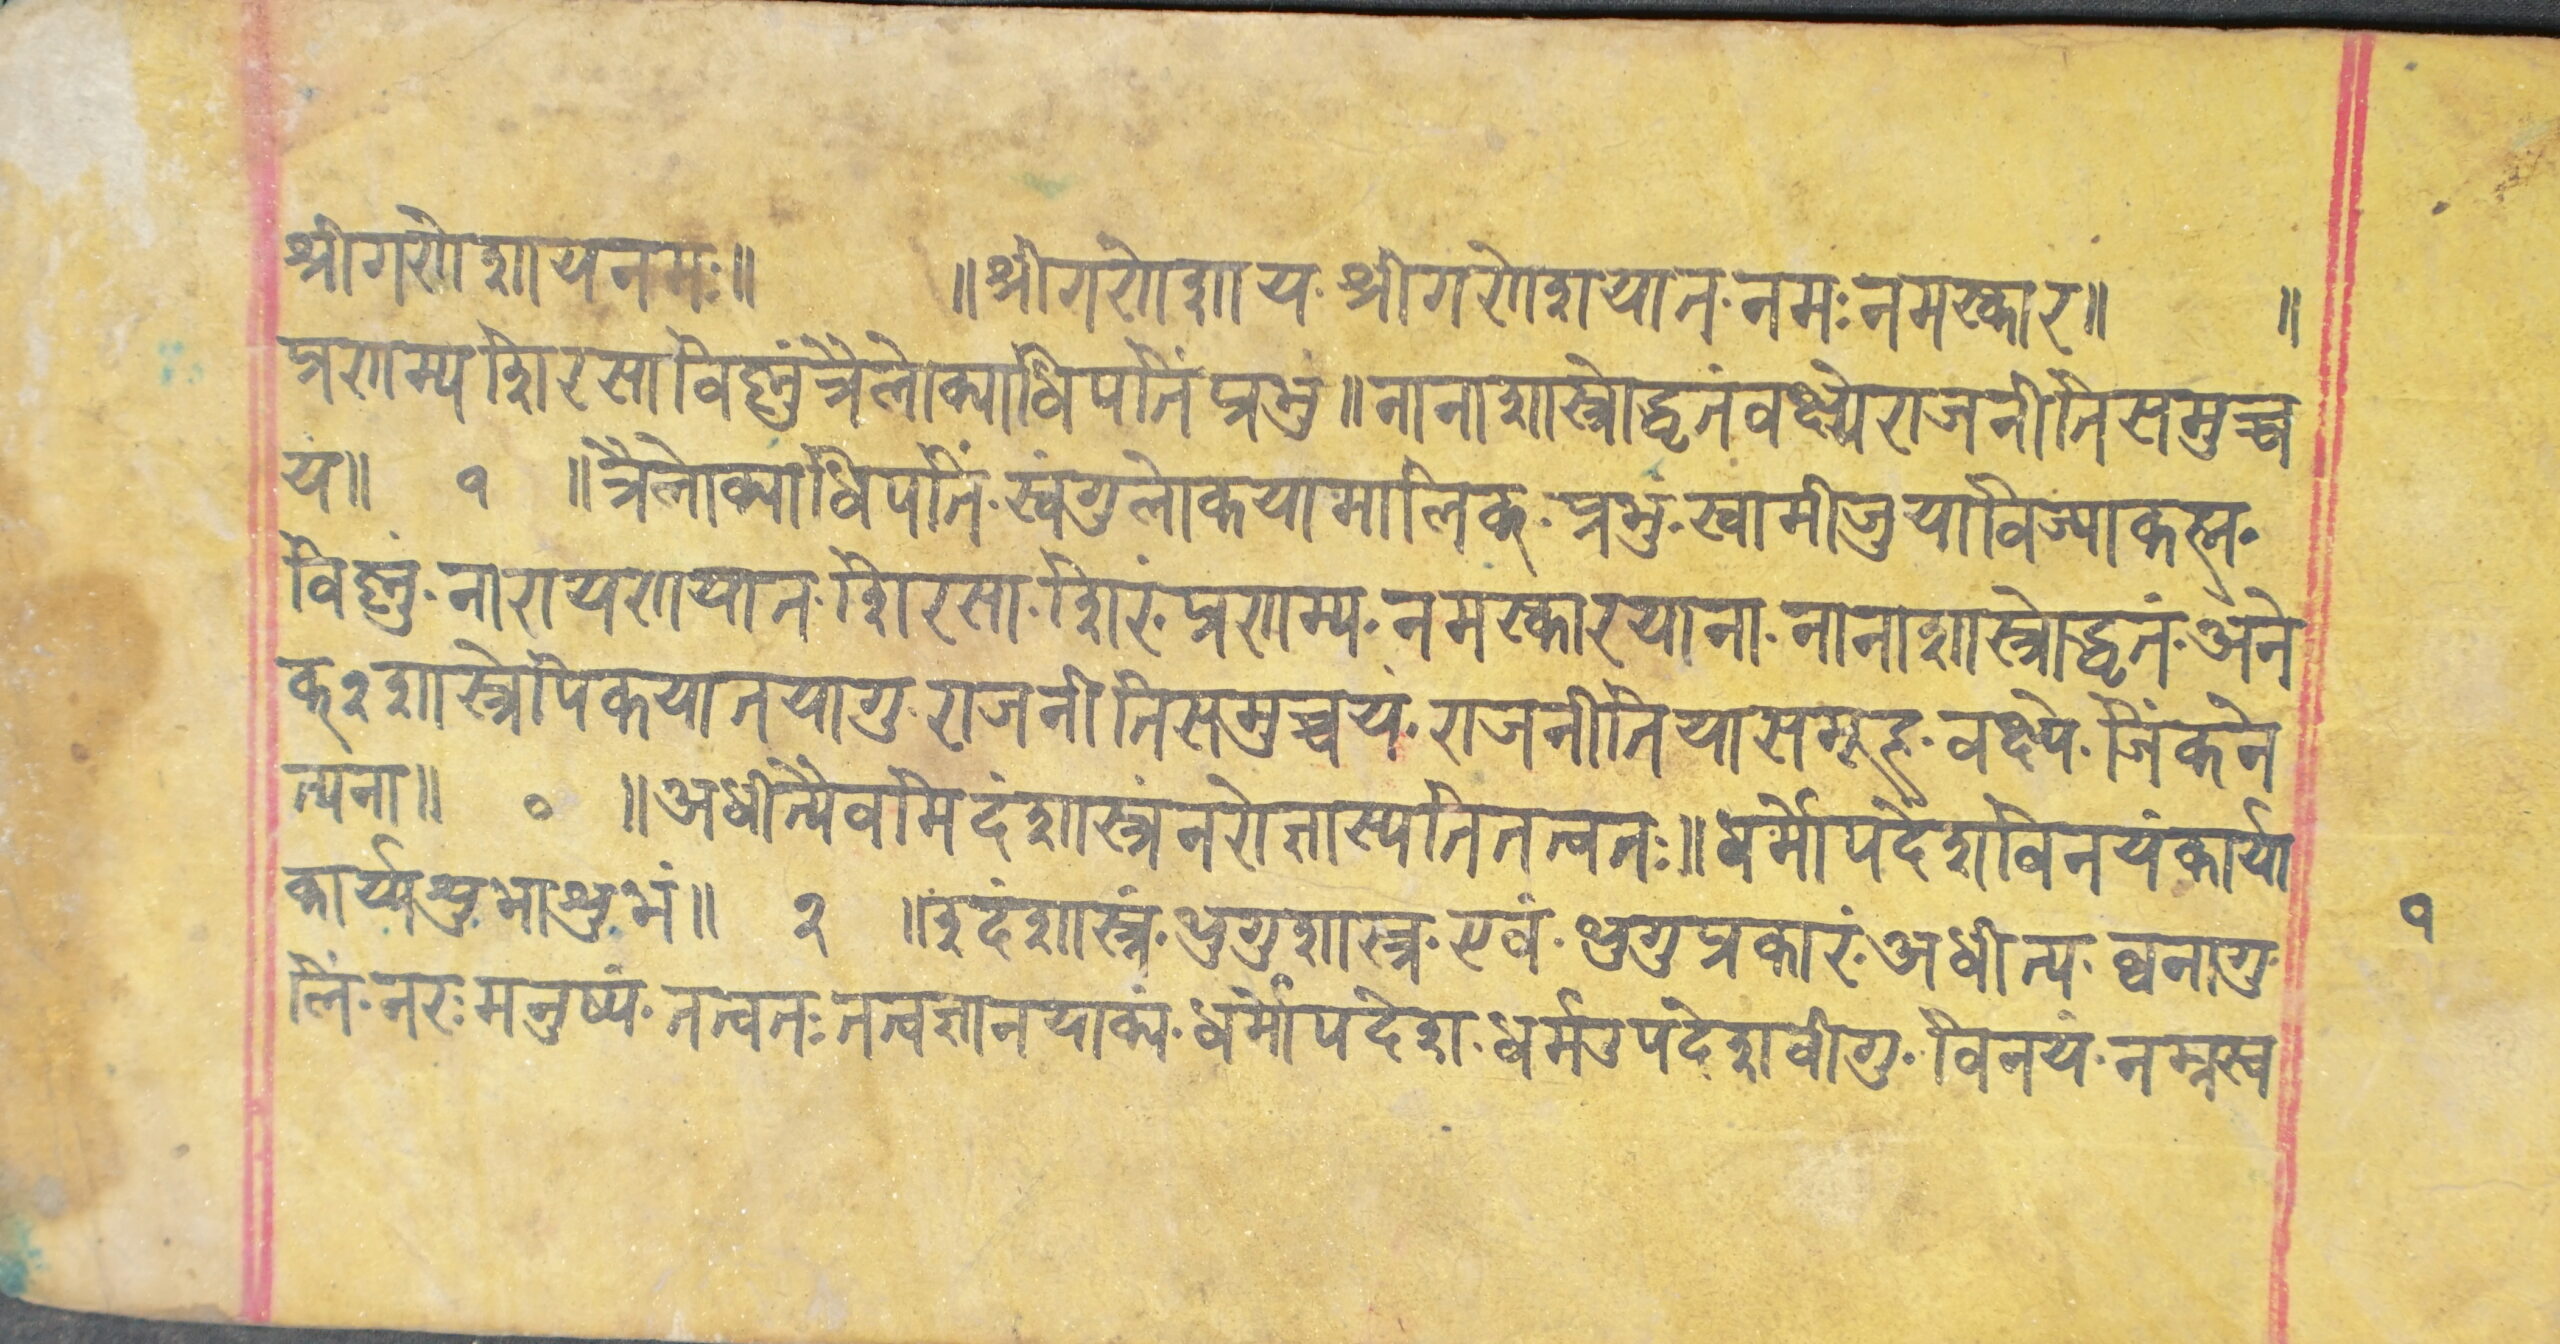 श्रीगणेशायनमः॥ ॥श्रीगणेशाय· श्रीगणेशयात· नमः नमस्कार॥ ॥
प्रणम्य शिरसा विष्णुं त्रैलोक्याधिपतिं प्रभुं॥ नानाशास्त्रोद्धृतं वक्ष्ये राजनीतिसमुच्च
यं॥ १ ॥त्रैलोक्याधिपतिं· स्वंगुलोकयामालिक्· प्रभुं· स्वामीजुयाविज्याकह्म·
विष्णुं· नारायणयात· शिरसा· शिरं· प्रणम्य· नमस्कारयाना· नानाशास्त्रोद्धृतं· अने
क्२ शास्त्रेपिकयातयागु· राजनीतिसमुच्चयं· राजनीतियासमूह· वक्ष्ये· जिंकने
त्यना॥ ० ॥अधीत्यैवमिदं शास्त्रं नरो ज्ञास्यति तत्वतः॥ धर्मोपदेशविनयं कार्या
कार्य्यशुभाशुभं॥ २ ॥इदंशास्त्रं· थुगुशास्त्र· एवं· थुगुप्रकारं· अधीत्य· ब्वनागु·
लिं· नरः मनुष्यं· तत्वतः तत्वज्ञानयाक्यं· धर्मोपदेश· धर्मउपदेशवीगु· विनयं· नम्रस्व
१